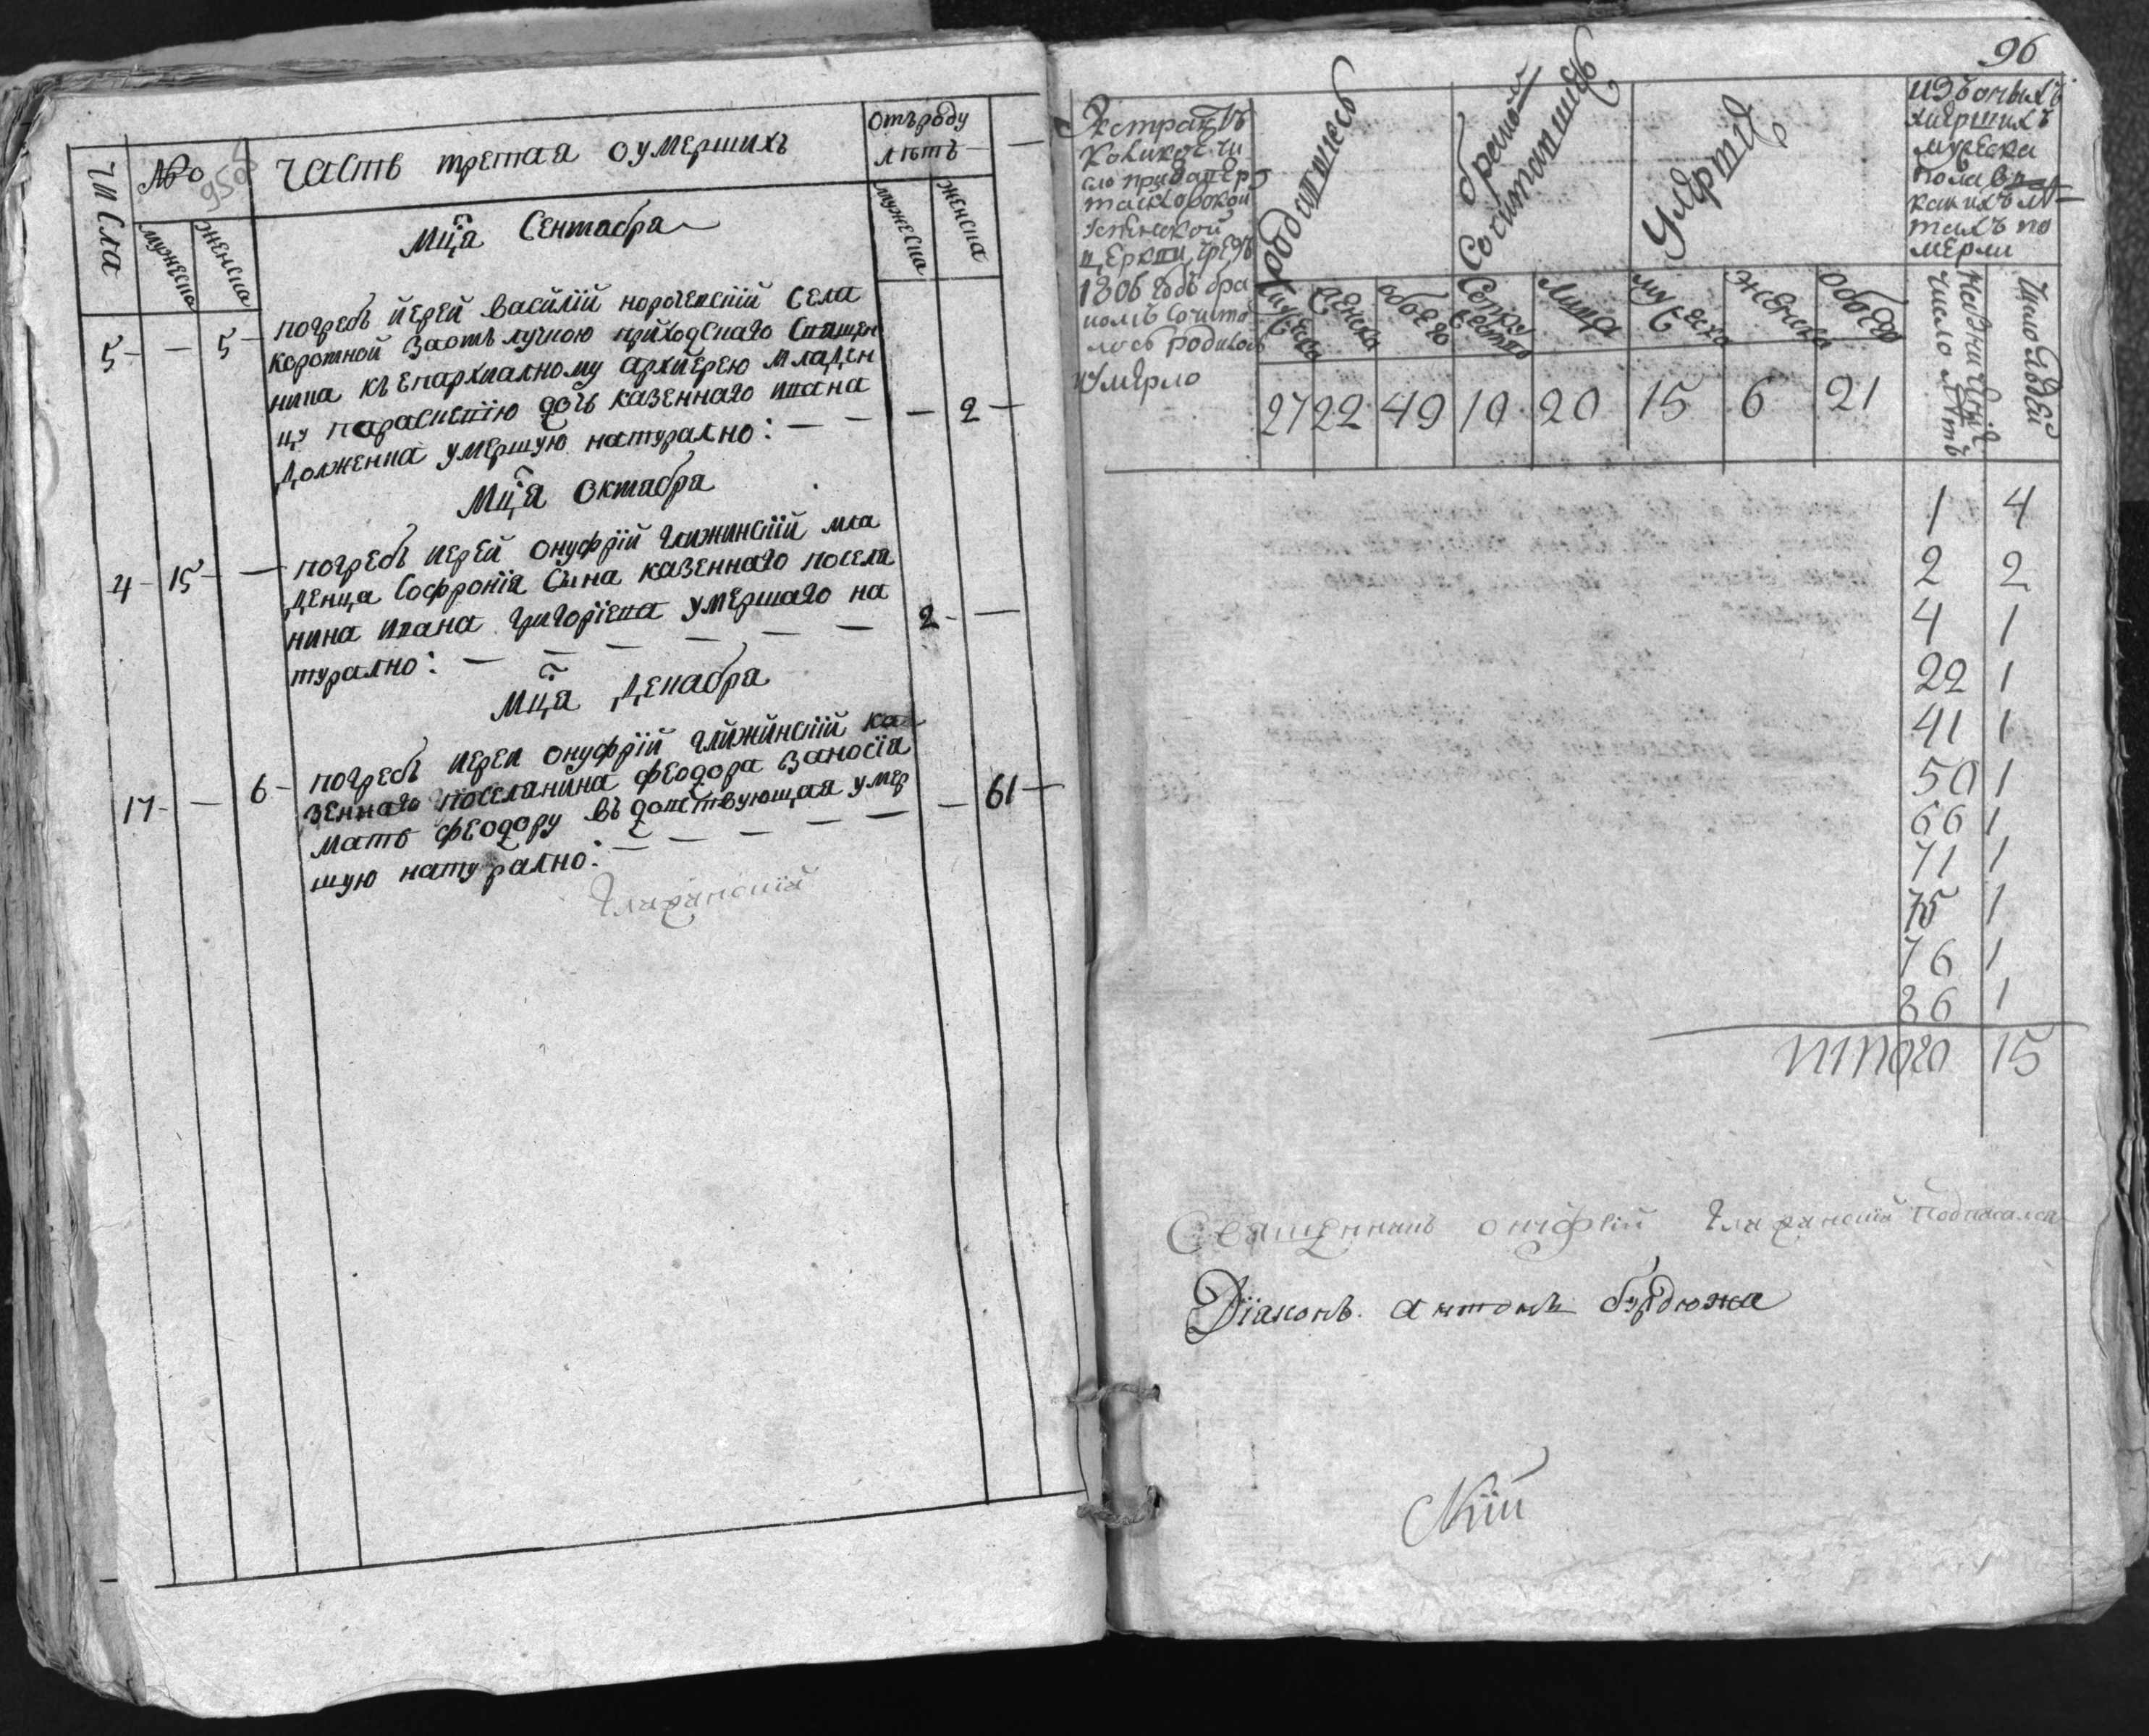 числа
№
95об
часть третая о умершихъ
отъ роду
лѣтъ
мужеска
женска
мужеска
женска
Мц҃а Сентабра
5 — — 5 — погребъ іерей василій корочевскій села
коротной за отлучкою приходскаго священ
ника къ епархиалному архиерею младен
цу параскевію дочь казеннаго ивана
долженка умершую натурално: — — — 2 —
Мц҃а Октабра
4 — 15 — — погребъ иерей онуфрій глижинскій мла
денца Софронія Сына казеннаго посела
нина ивана григоріева умершаго на
турално: — — — — — — 2 — —
Мц҃а Декабра
17 — — 6 — погребъ иереи онуфрій глижинскій ка
зеннаго поселанина феодора заносія
мать феодору вдовствующая умер
шую натурално: — — — — — — 61 —
96
Экстрактъ
Коликое чи
сло при
церкви чрезъ
1806 годъ бра
комъ сочита
лось родилось
и умерло
Родившиесь
мужеска
женска
обоего
бракомъ
Сочитавшиесь
Супружество
Лица
Умертiя
мужеска
женска
обоего
27 22 49 10 20 15 6 21
изъ оныхъ
умершихъ
мужеска
пола в
какихъ лѣ
тахъ по
мерли
число лѣтъ
число людей
1 4
2 2
4 1
22 1
41 1
50 1
66 1
71 1
75 1
76 1
86 1
итого 15
Священникъ онуфрій подписался
Діаконъ антонъ бурдюжа
скій